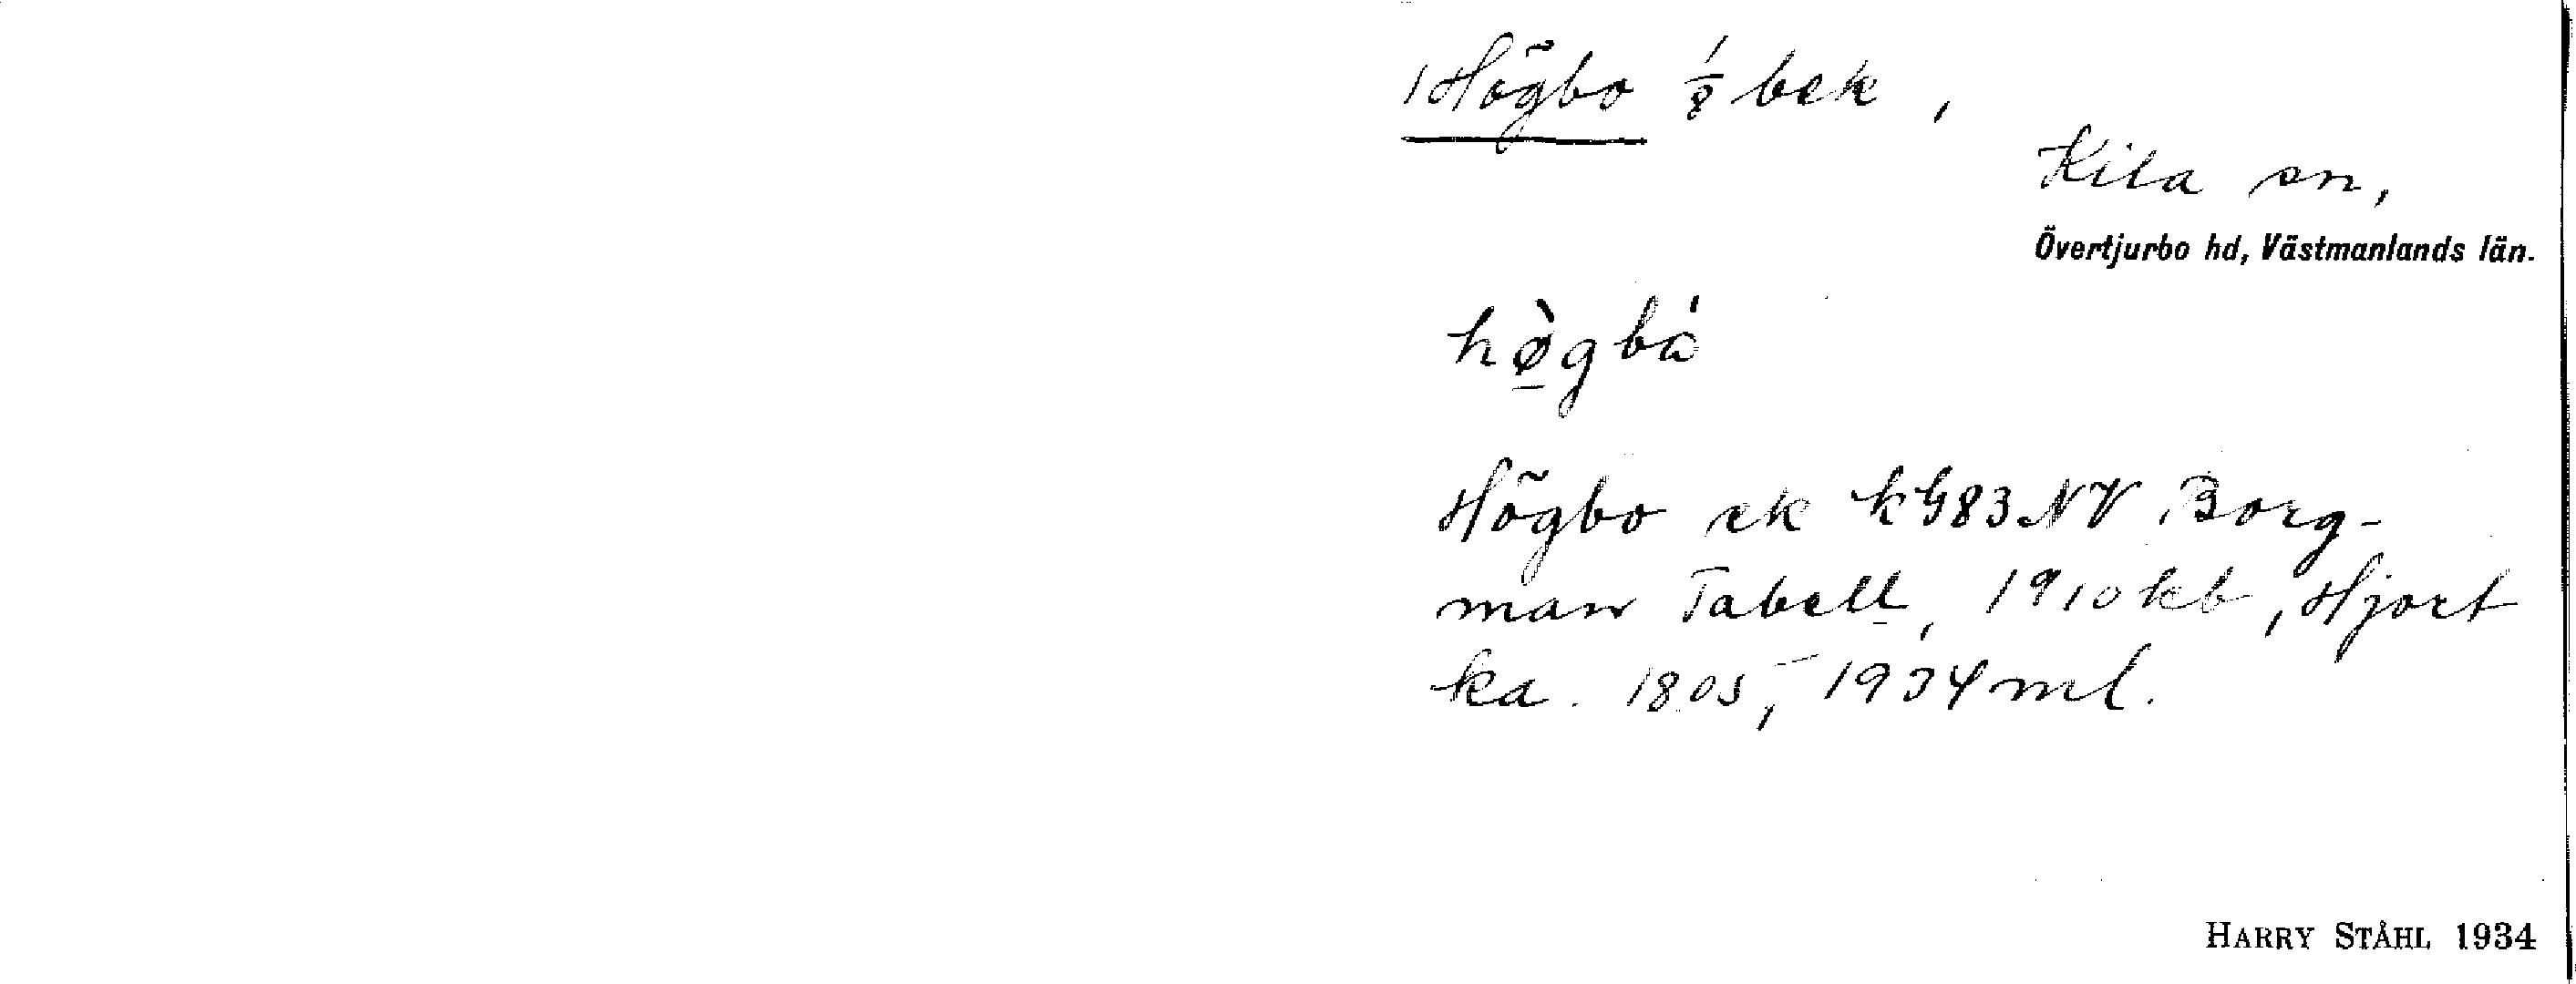 Högbo 1/8 bek,
Kila sn,
Övertjurbo hd, Västmanlands län.
hø̀gbå
Högbo ek k G83 NV Borg-
man Tabell, 1910 kb, Hjort
ka. 1805, 1934 ml.
HARRY STÅHL 1934